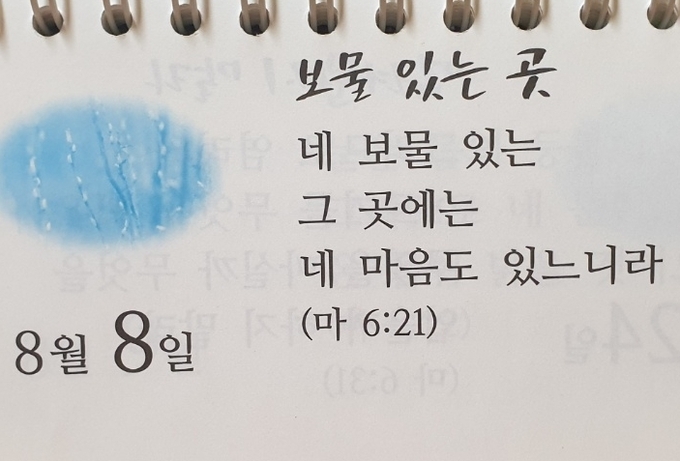 보물 있는 곳
네 보물 있는
그 곳에는
네 마음도 있느니라
(마 6:21)
8월 8일
24일
(마 6:31)